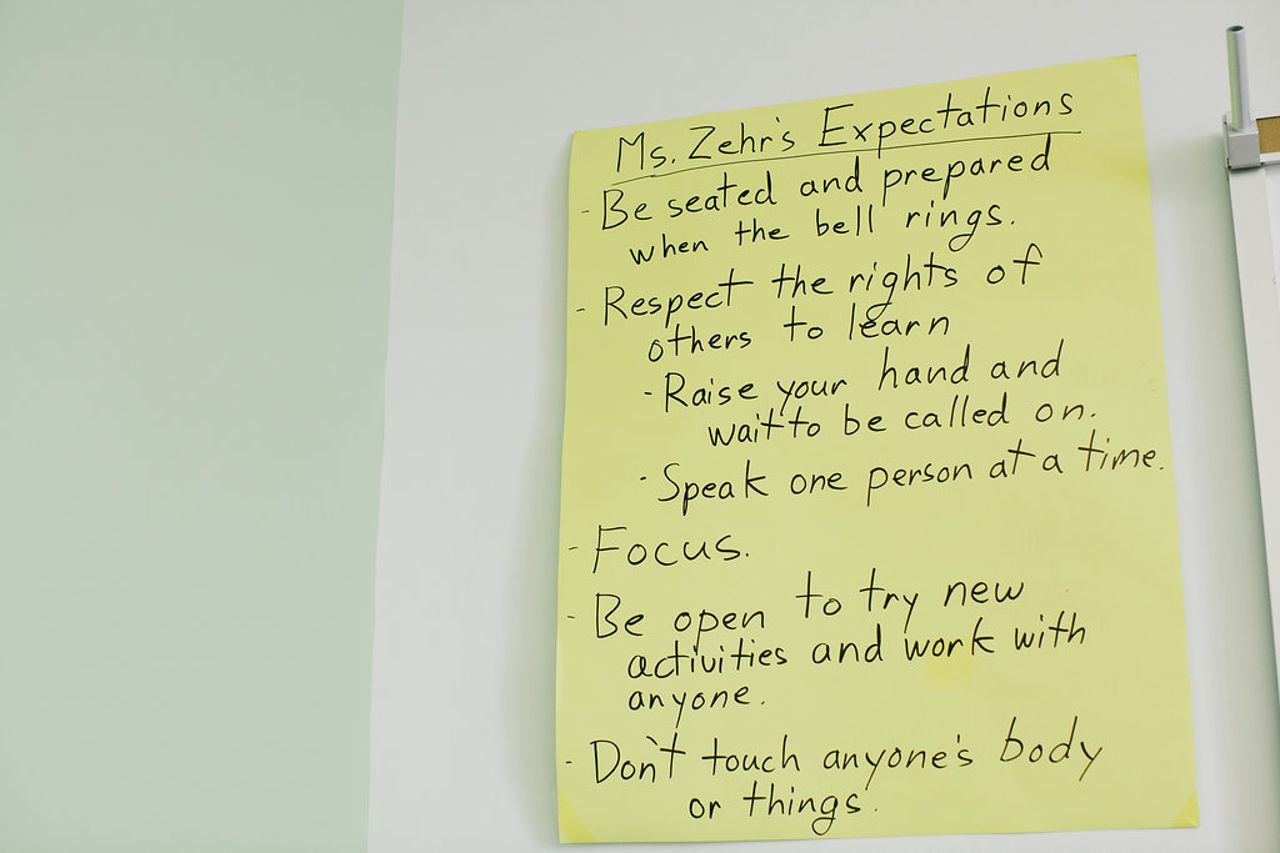 Ms. Zehr's Expectations
- Be seated and prepared
when the bell rings.
- Respect the rights of
others to learn
- Raise your hand and
wait to be called on.
- Speak one person at a time.
- Focus.
- Be open to try new
activities and work with
anyone.
- Don't touch anyone's body
or things.